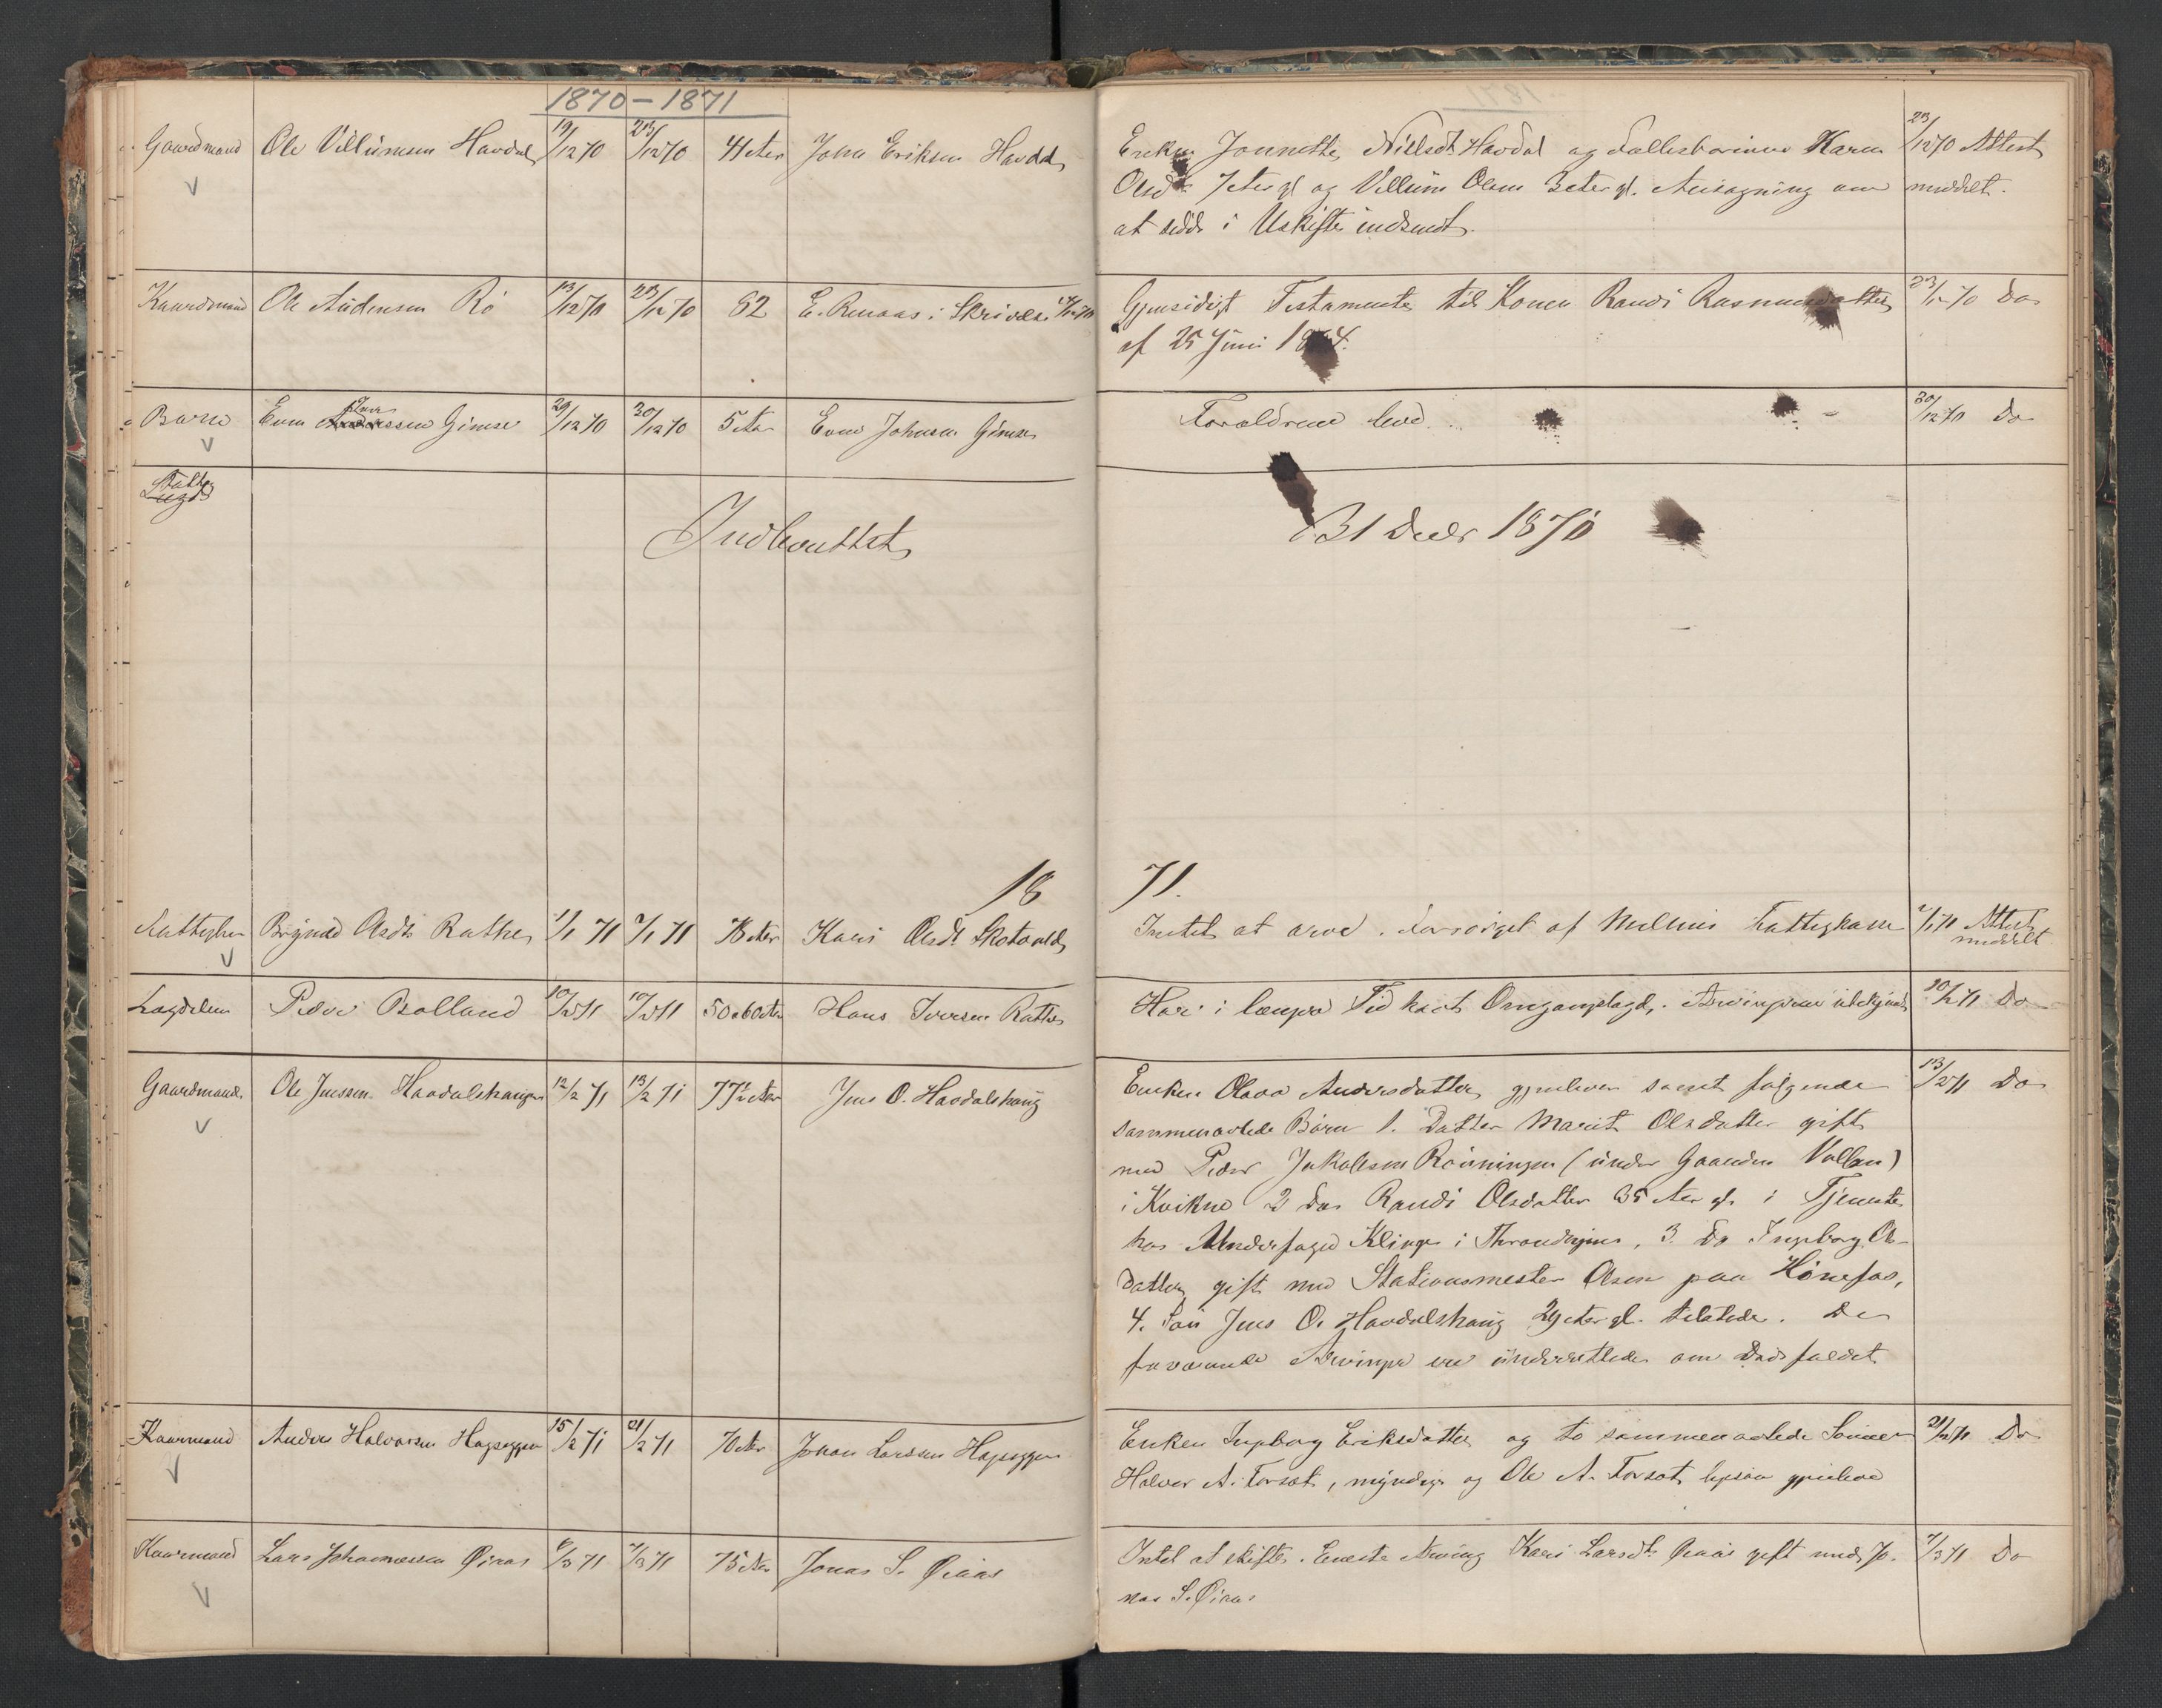 1870-1871
Gaardmand Ole Villumsen Havdal 19/12 70 23/12 70 41 Aar John Eriksen Havdal
Enken Jonnetta Nielsdt Havdal og Fællesbørnene Karen 23/12 70 Attest
Olsdt 7 Aar gl og Villum Olsen 3 Aar gl. Ansøgning om meddelt.
at sidde i Uskifte indsendt.
Kaardmand Ole Audensen Rø 13/12 70 23/12 70 62 E. Renaas i Skrivelse
Gjensidigt Testamente til Konen Randi Rasmusdatter 23/12 70 Do
af 25 Juni 18 4.
Barn Even Iver Gimse 29/12 70 30/12 70 5 Aar Even Johnsen Gimse
Forældrene leve 30/12 70 Do
Fattig
Lægd
Indberettet 31 Decbr 1870
18 71.
Fattiglem Brynild Olsdt Rathe 1/1 71 7/1 71 78 Aar Kari Olsdt Skotvold
Intet at arve. Forsørget af Melhus Fattigkasse 7/1 71 Attest
meddelt
Lægdslem Peder Bolland 10/2 71 10/2 71 50 a 60 Aar Hans Iversen Rathe
Har i længere Tid havt Omgangslægd. Arvingerne ubekjendt 10/2 71 Do
Gaardmand Ole Jenssen Havdalshaugen 12/2 71 13/2 71 77½ Aar Jens O. Havdalshaug
Enken Olava Andersdatter gjenlever samt følgende 13/2 71 Do
sammenavlede Børn 1. Datter Marit Olsdatter gift
med Peder Jakobsen Rønningen (under Gaarden Vollan)
i Kvikne 2 Do Randi Olsdatter 35 Aar gl. i Tjeneste
hos Underfoged Klinge i Throndhjem, 3. Do Ingeborg Ols-
datter gift med Stationsmester Olsen paa Hønefos,
4. Søn Jens O. Havdalshaug 29 Aar gl. tilstede. De
fraværende Arvinger ere underrettede om Dødsfaldet
Kaarmand Anders Halvorsen Hageggen 15/2 71 21/2 71 70 Aar Johan Larssen Hageggen
Enken Ingeborg Eriksdatter og to sammenavlede Sønner 21/2 71 Do
Halvor A. Forsæt, myndig og Ole A. Forsæt ligesaa gjenleve
Kaarmand Lars Johannessen Øiaas 6/3 71 7/3 71 75 Aar Jonas S. Øiaas
Intet at skifte. Eneste Arving Kari Larsdt. Øiaas gift med Jo- 7/3 71 Do
nas S. Øiaas